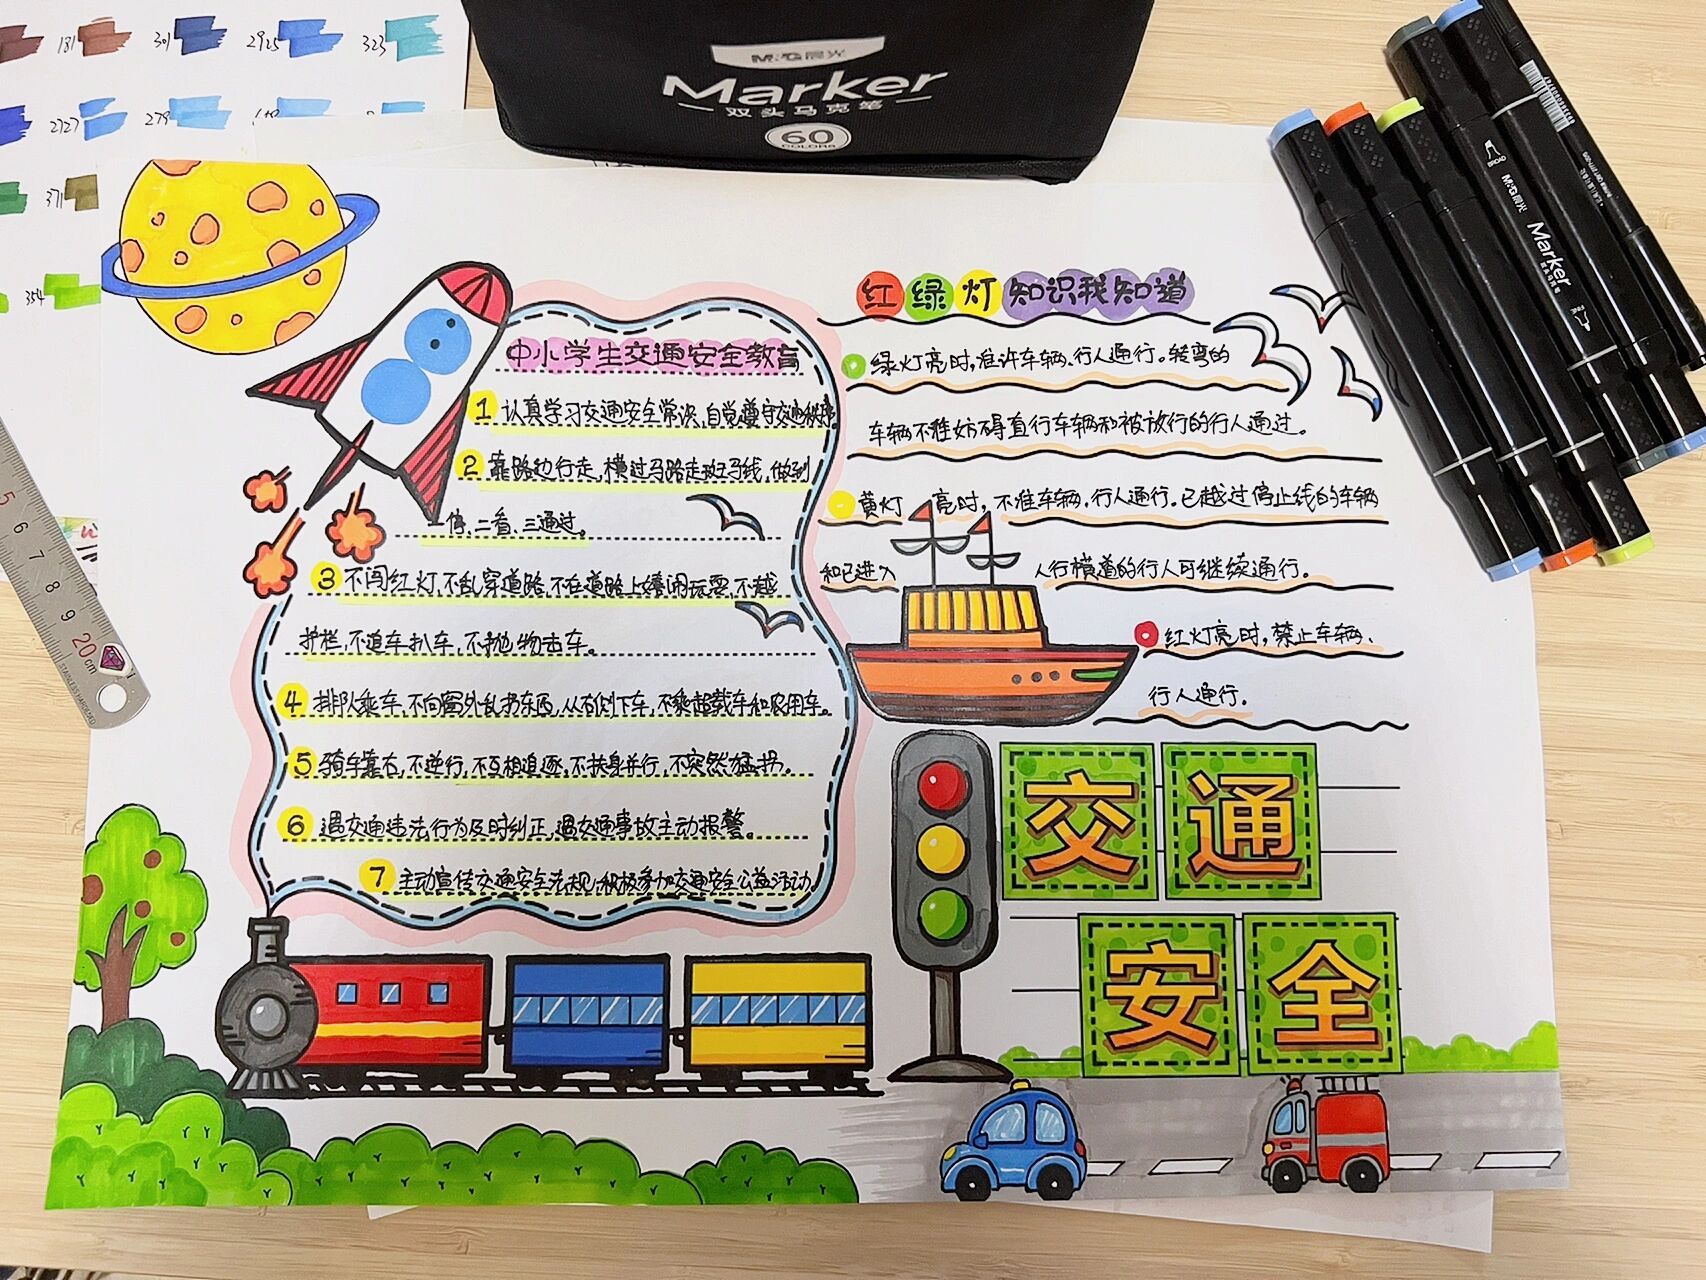 181
301
2925
323
2727
279
371
354
M&G晨光
Marker
双头马克笔
60
COLORS
BROAD
M&G晨光
Marker
5
6
7
8
9
20 cm
STAINLESS HARDENED
中小学生交通安全教育
1 认真学习交通安全常识,自觉遵守交通秩序
2 靠路边行走,横过马路走斑马线,做到
一停、二看、三通过。
3 不闯红灯,不乱穿道路,不在道路上嬉闹玩耍,不越
护栏,不追车扒车,不抛物击车。
4 排队乘车,不向窗外乱扔东西,从右侧下车,不乘超载车和农用车。
5 骑车靠右,不逆行,不互相追逐,不扶身并行,不突然猛拐。
6 遇交通违法行为及时纠正,遇交通事故主动报警。
7 主动宣传交通安全法规,积极参加交通安全公益活动
红绿灯知识我知道
绿灯亮时,准许车辆、行人通行。转弯的
车辆不准妨碍直行车辆和被放行的行人通过。
黄灯亮时,不准车辆、行人通行。已越过停止线的车辆
和已进入人行横道的行人可继续通行。
红灯亮时,禁止车辆、
行人通行。
交通
安全